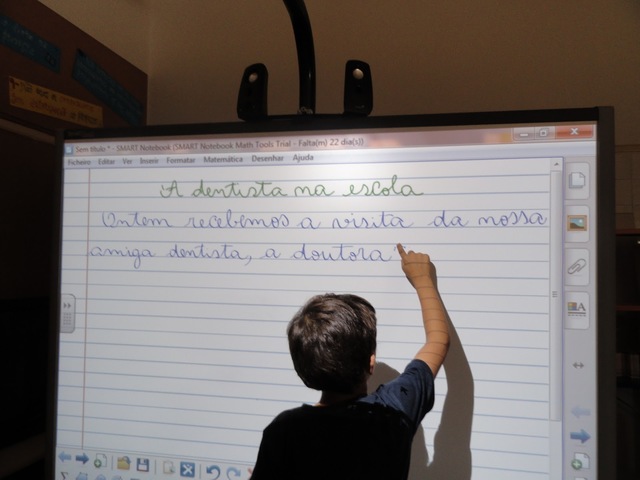 Sem título * - SMART Notebook (SMART Notebook Math Tools Trial - Falta(m) 22 dia(s))
Ficheiro Editar Ver Inserir Formatar Matemática Desenhar Ajuda
A dentista na escola
Ontem recebemos a visita da nossa
amiga dentista, a doutora